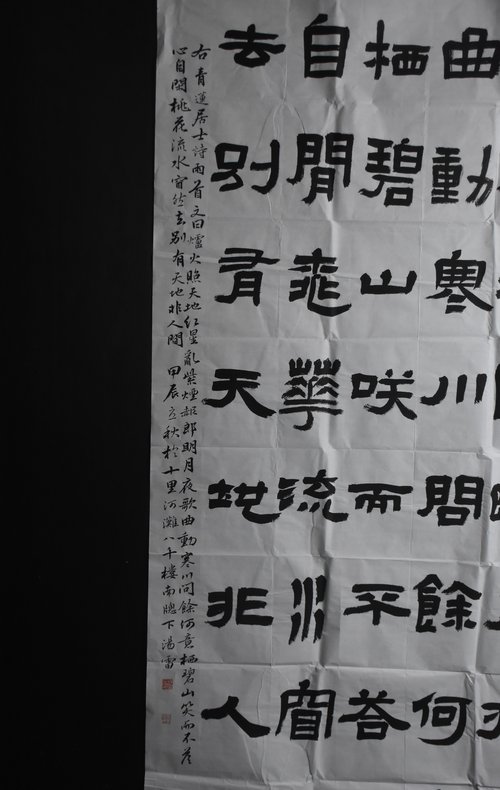 曲動寒川問餘何
栖碧山咲而不荅
自閒桃華流水窅
去别有天地非人
右青蓮居士詩兩首文曰爐火照天地紅星亂紫煙赧郎明月夜歌曲動寒川問餘何意栖碧山笑而不荅
心自閑桃花流水窅然去别有天地非人間 甲辰立秋於十里河灘八千樓南牕下湯雷